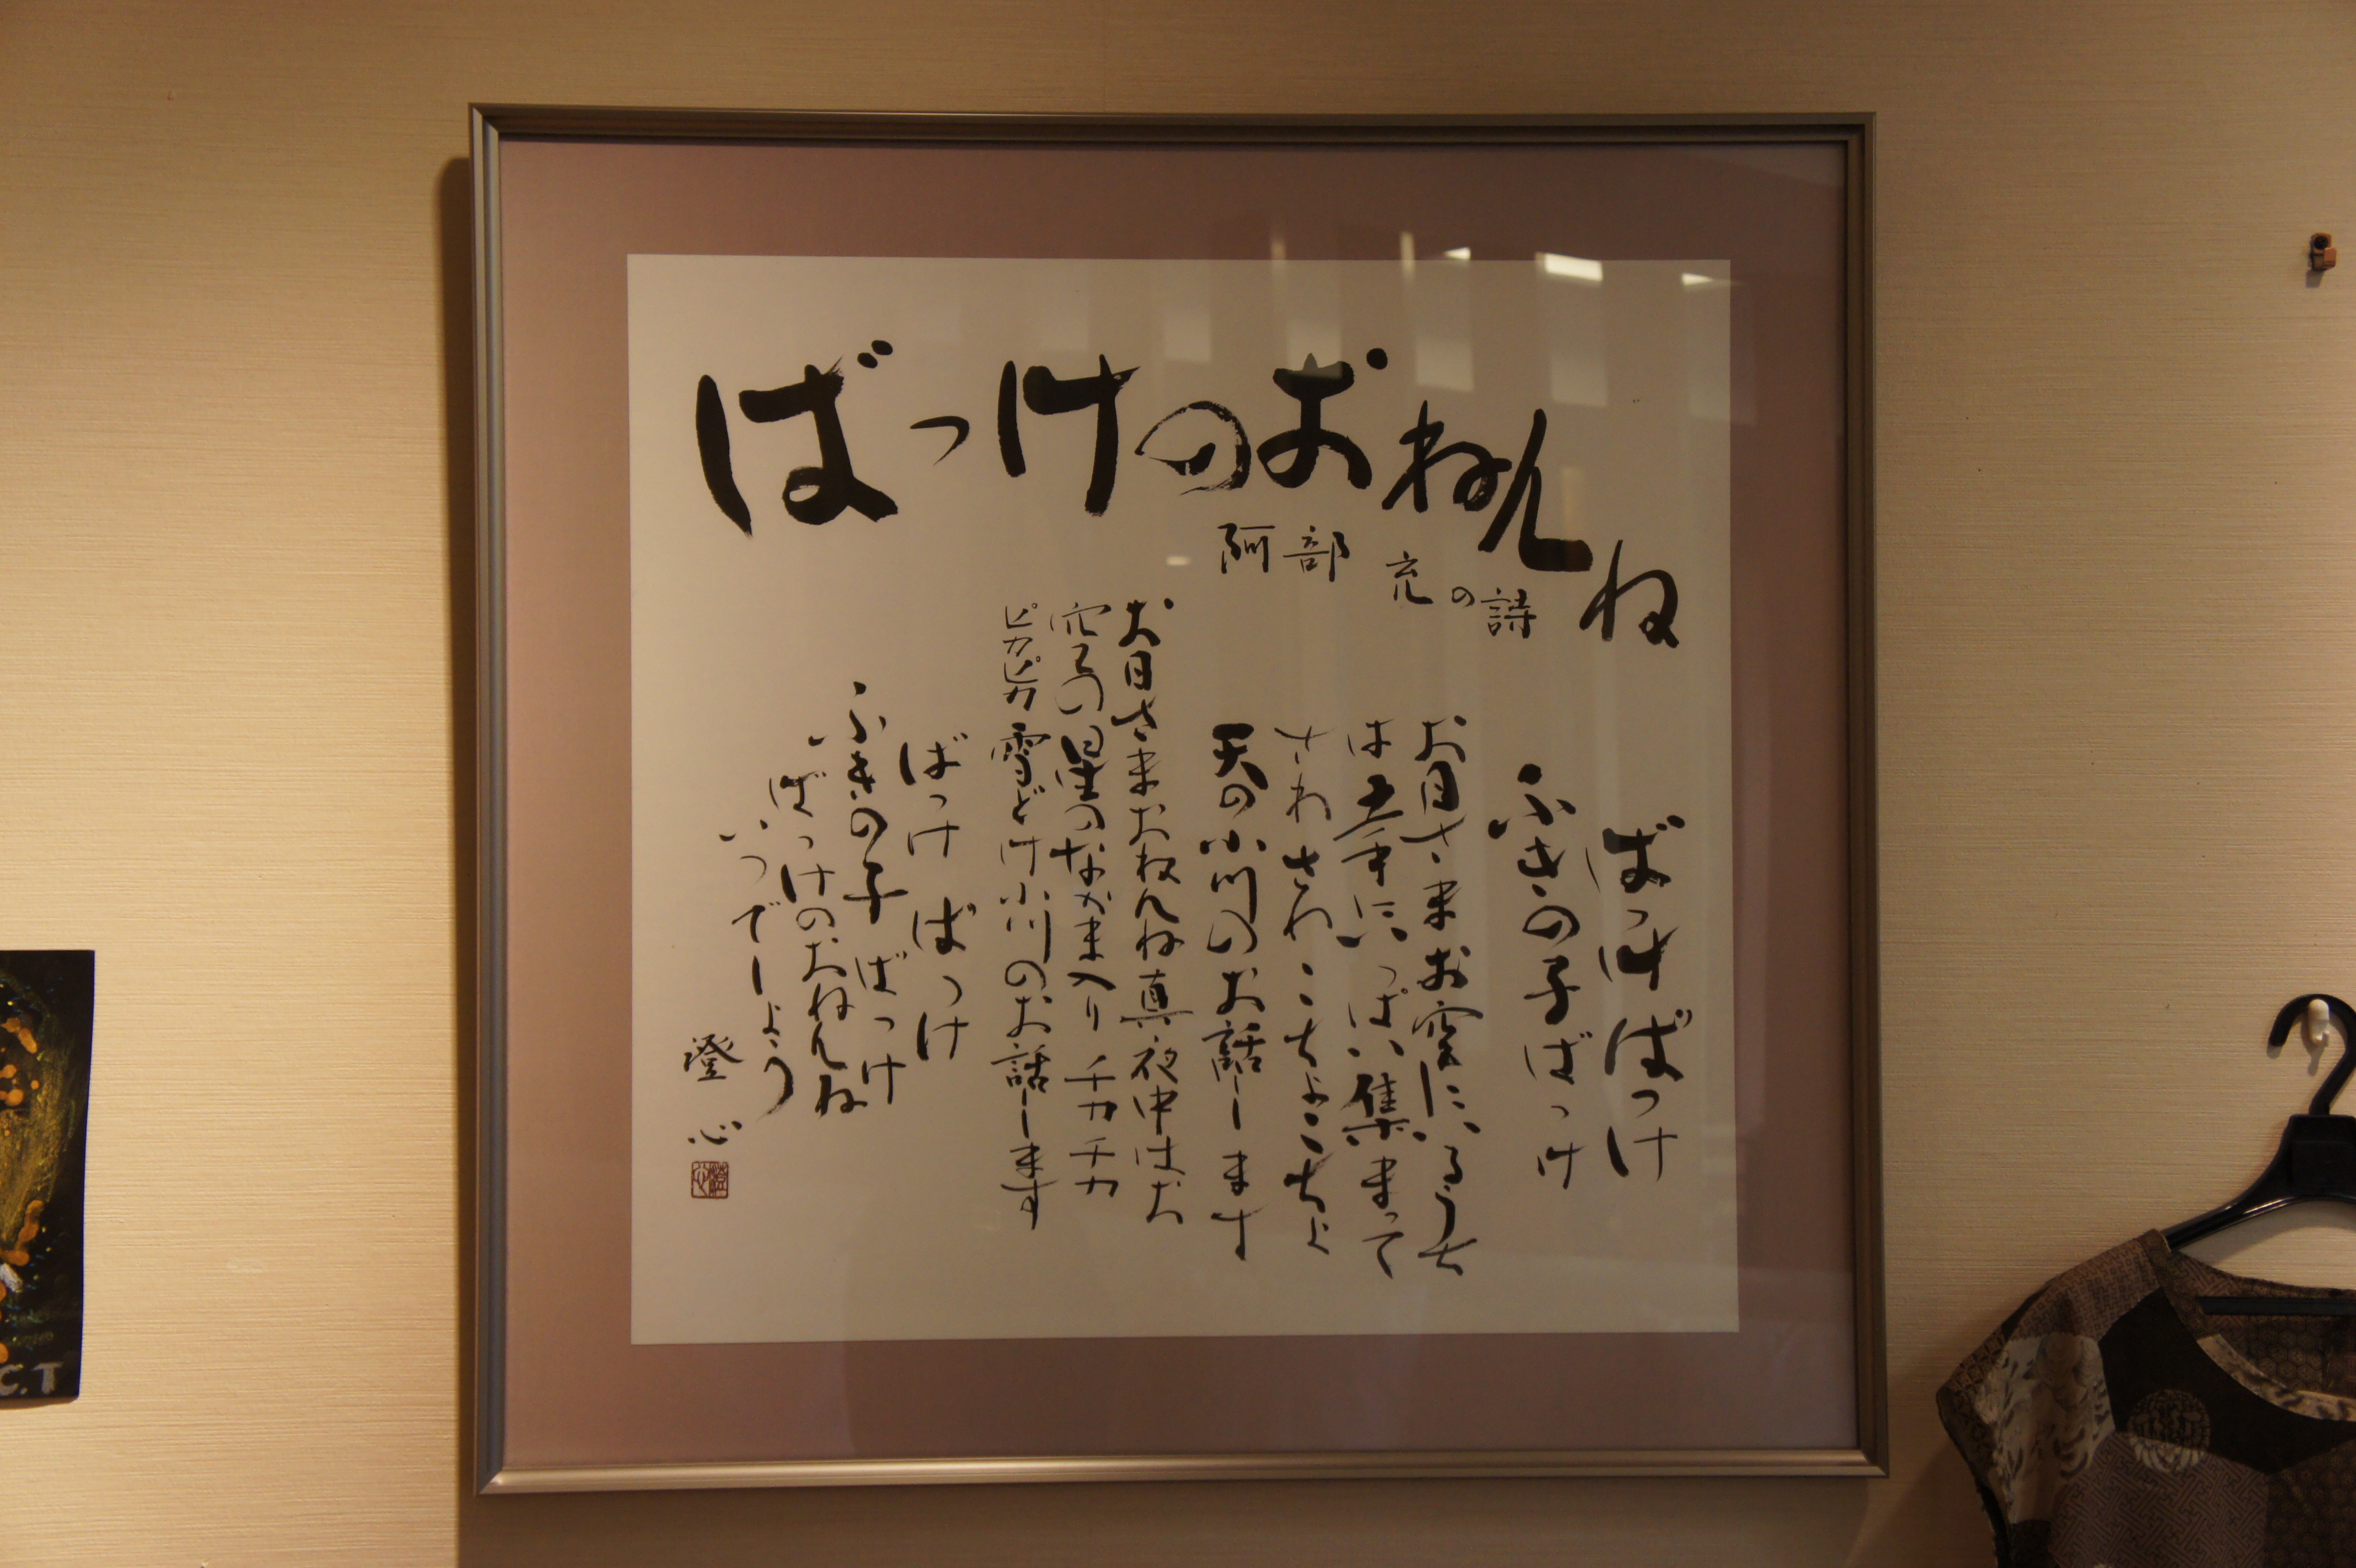 ばっけのおねんね
阿部 充の詩
ばっけばっけ
ふきの子ばっけ
お日さまお空にいるうち
は土手にいっぱい集まって
さわさわこちょこちょ
天の小川のお話しします
お日さまおねんね真夜中はお
空の星のなかま入りチカチカ
ピカピカ雪どけ小川のお話しします
ばっけばっけ
ふきの子ばっけ
ばっけのおねんね
いつでしょう
澄心
C.T